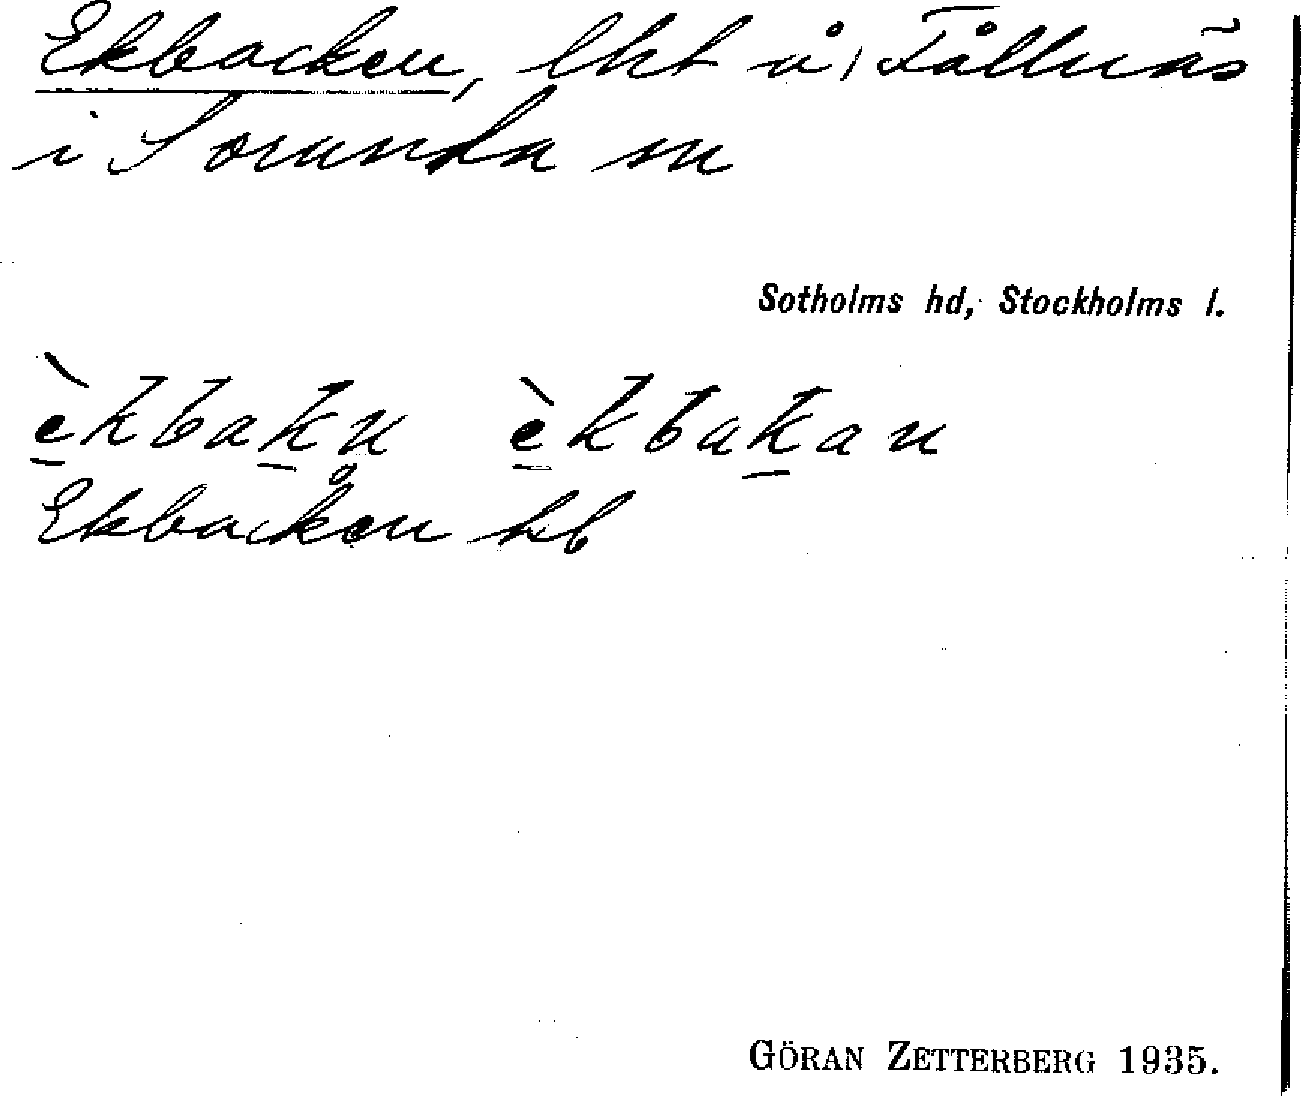 Ekbacken, lht å Fållnäs
i Sorunda sn
Sotholms hd, Stockholms l.
èkbakn èkbakan
Ekbacken hb
GÖRAN ZETTERBERG 1935.